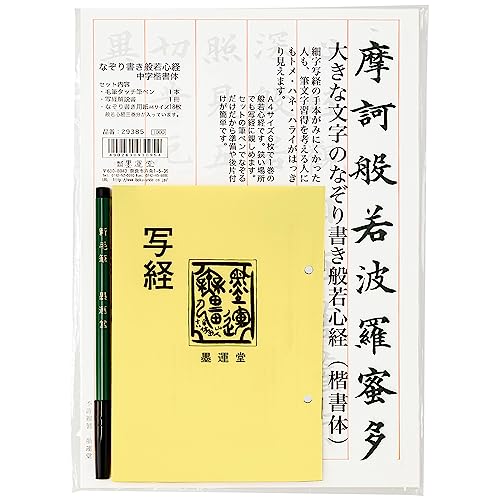 摩訶般若波羅蜜多
大きな文字のなぞり書き般若心経（楷書体）
細字写経の手本がみにくかった
人も、筆文字習得を考える人に
もトメ・ハネ・ハライがはっき
り見えます。
A4サイズ6枚で1巻の
般若心経です。狭い場所
でも写経に親しめます。
セットの筆ペンでなぞる
だけだから準備や後片付
けが簡単です。
なぞり書き般若心経
中字楷書体
セット内容
・毛筆タッチ筆ペン 1本
・写経解説書 1冊
・なぞり書き用紙A4サイズ18枚
般若心経三巻分が入っています。
品番：29385
墨運堂
写経
墨運堂
新毛筆 墨運堂